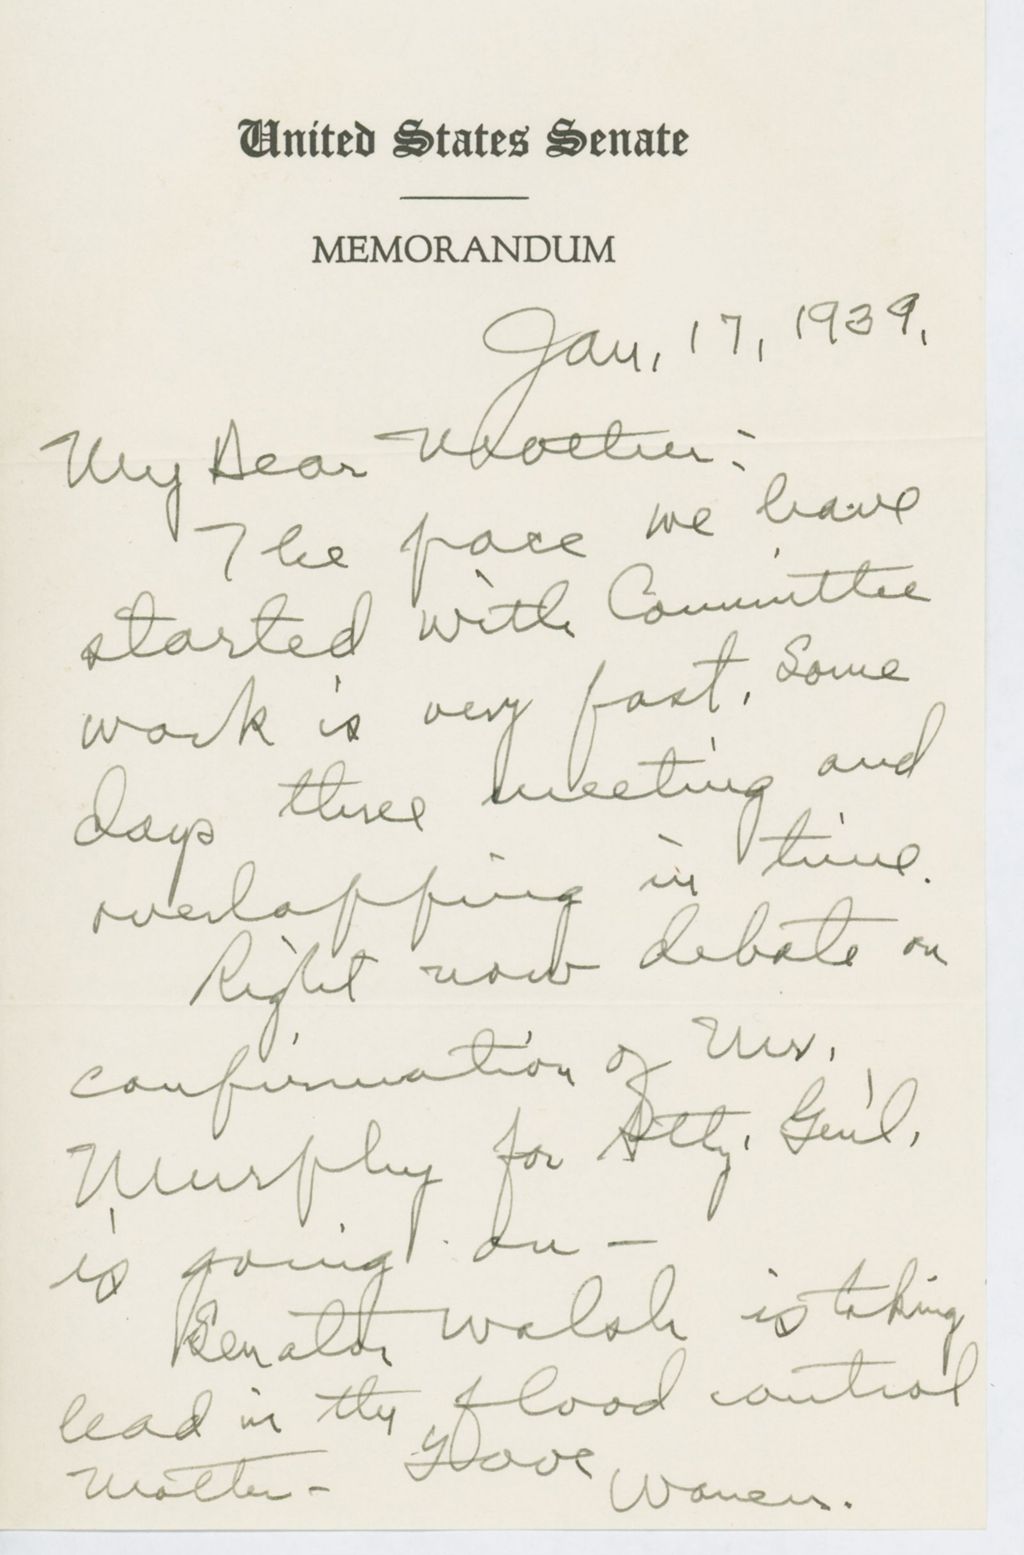 United States Senate
MEMORANDUM
Jan. 17, 1939.
My Dear Mother:
The pace we have
started with Committee
work is very fast. Some
days three meeting and
overlapping in time.
Right now debate on
confirmation of Mr.
Murphy for Atty. Gen'l.
is going on –
Senator Walsh is taking
lead in the flood control
matter –
Love
Warren.